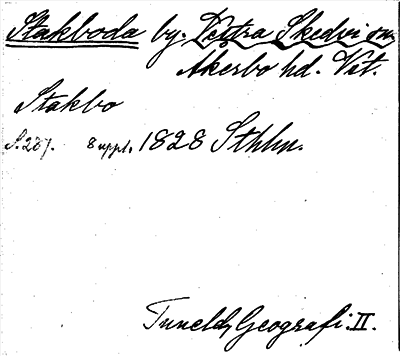 Stakboda by. Västra Skedvi sn,
Åkerbo hd. Vst.
Stakbo
S. 287. 8 uppl. 1828 Sthlm.
Tunelds Geografi. II.